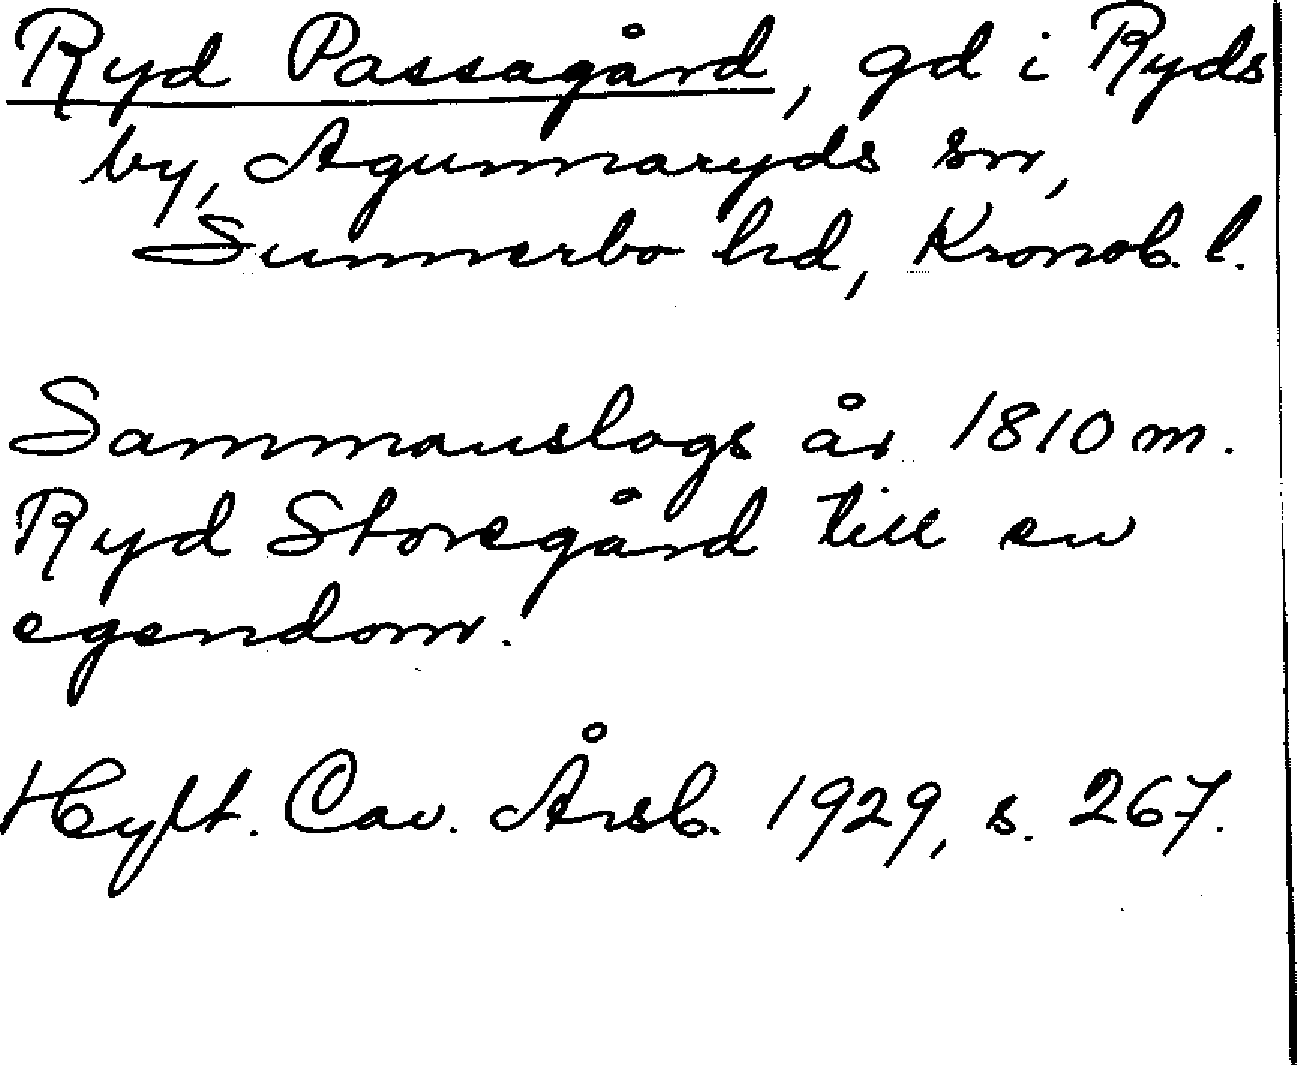 Ryd Passagård, gd i Ryds
by, Agunnaryds sn,
Sunnerbo hd, Kronob. l.
Sammanslogs år 1810 m.
Ryd Storegård till en
egendom.
Hylt. Cav. Årsb. 1929, s. 267.